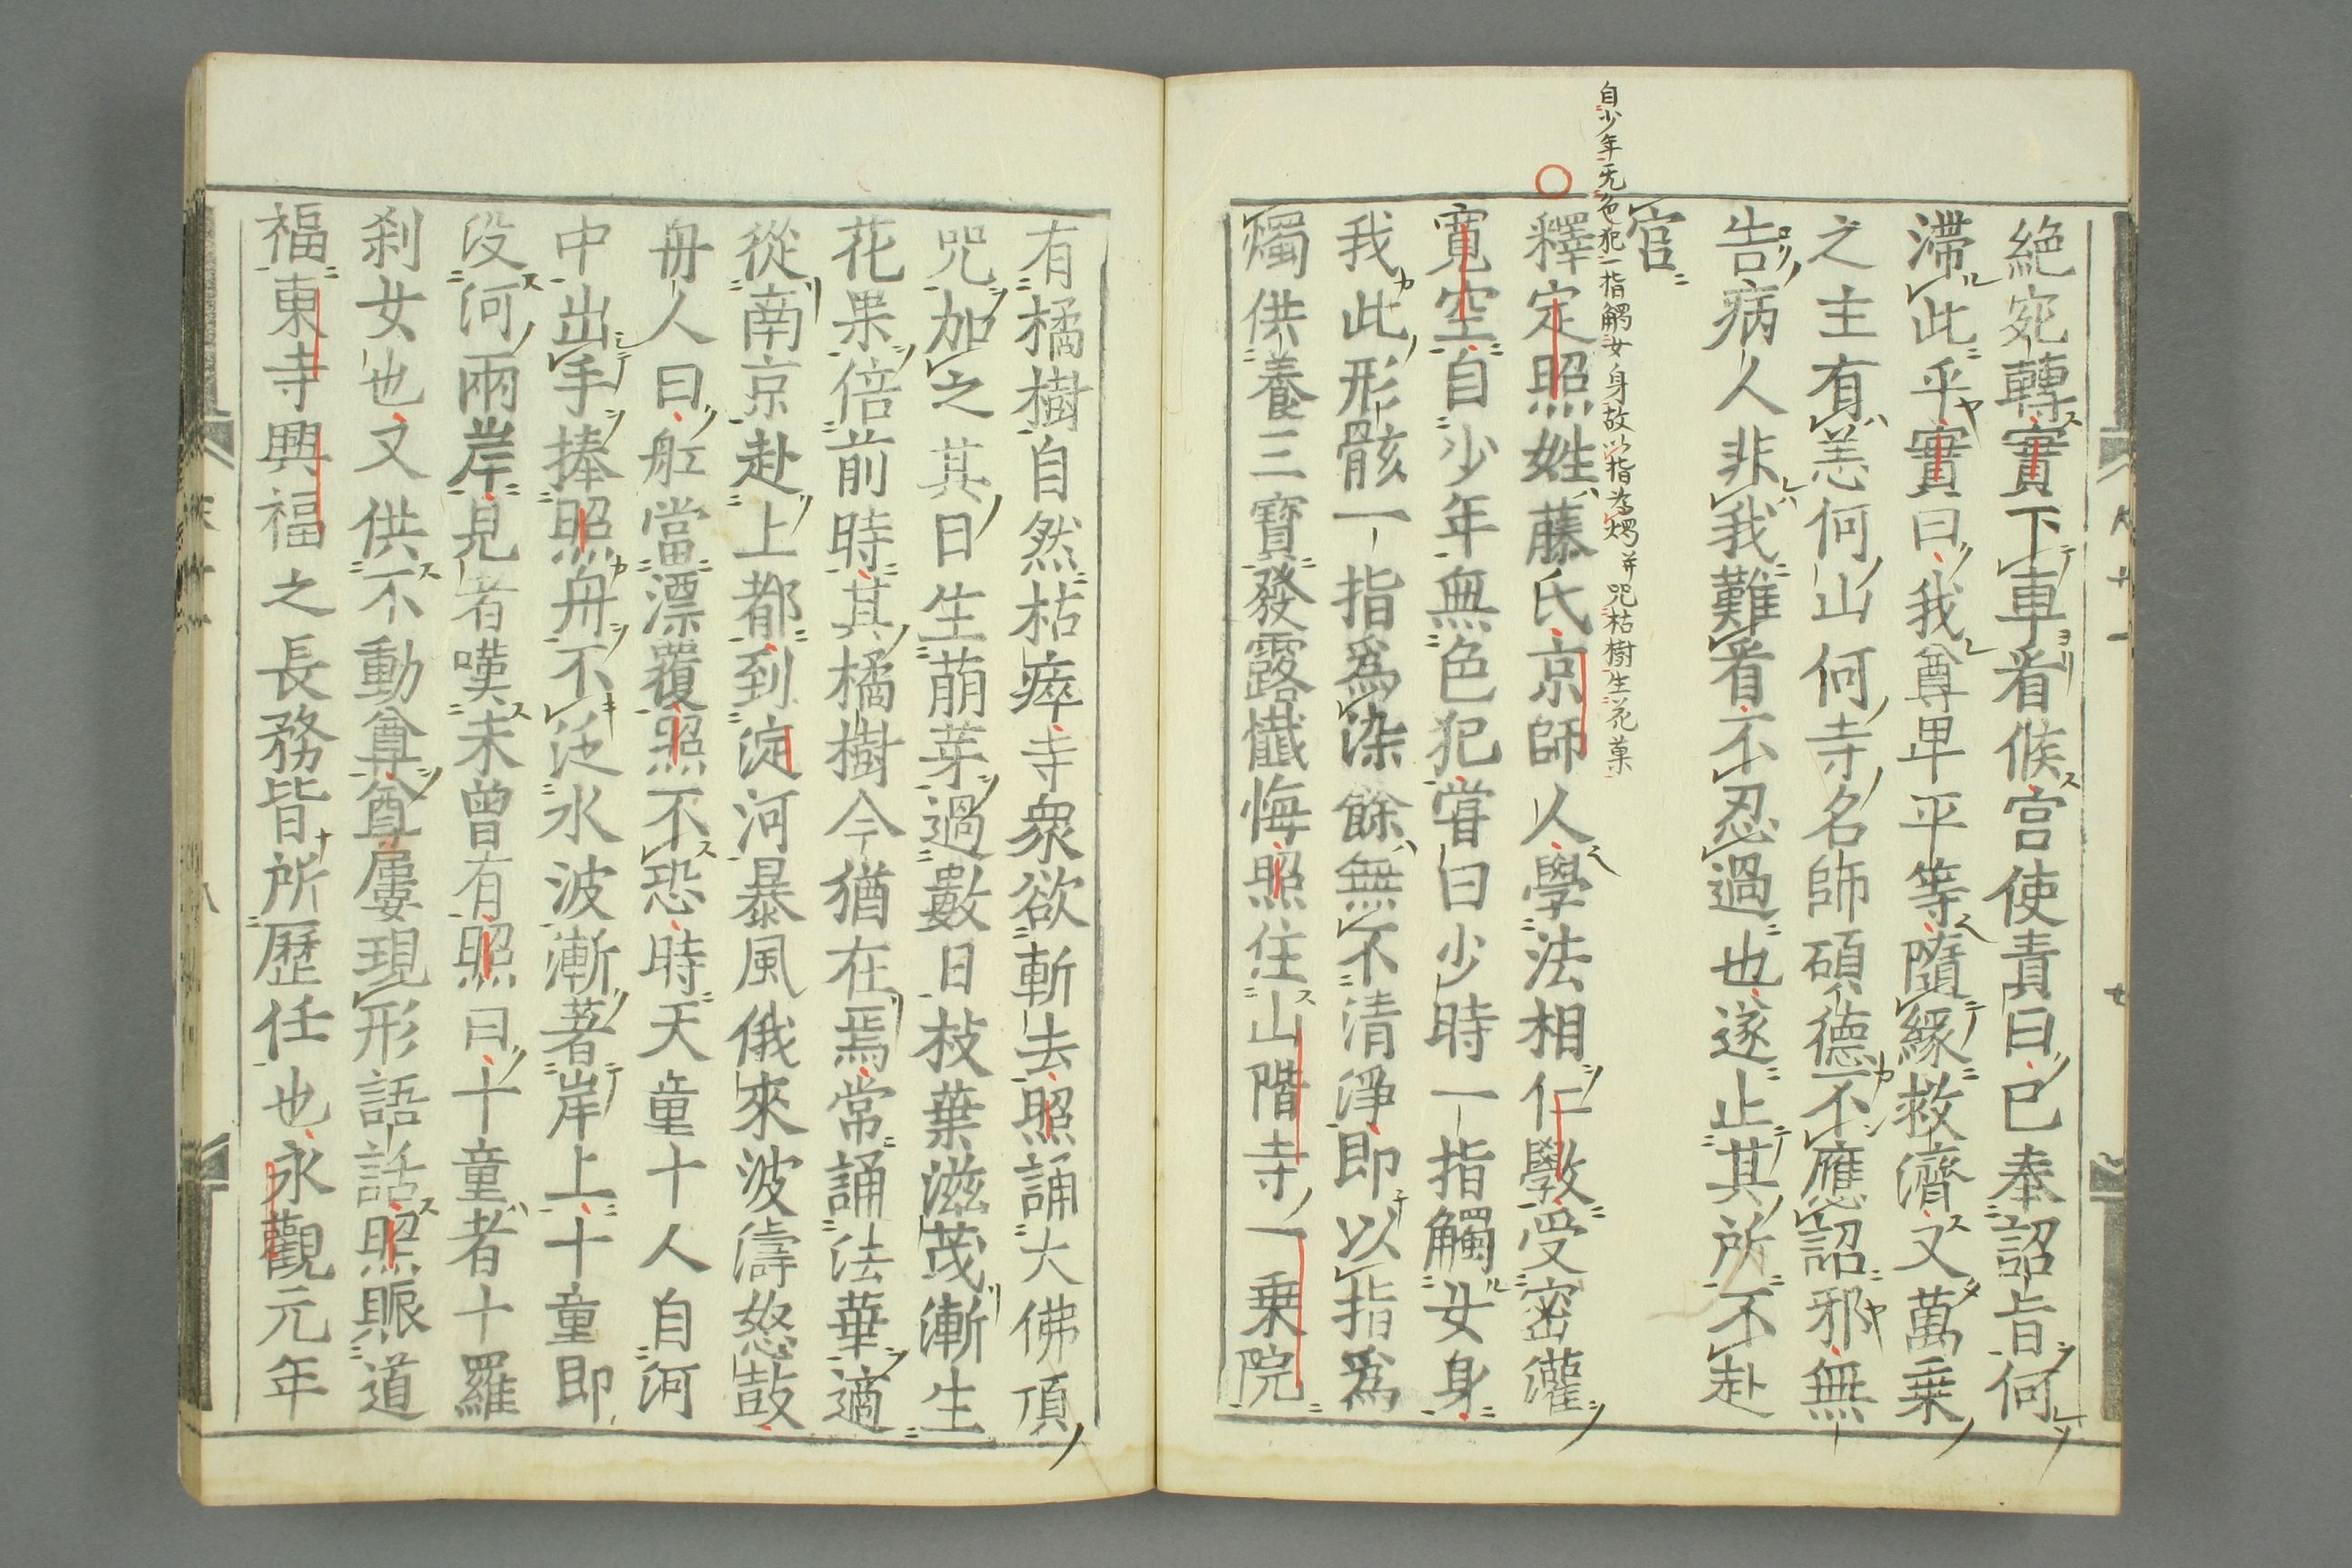 絶宛轉實下車看候宮使責曰已奉詔旨何
滯此乎實曰我尊卑平等隨縁救濟又萬乗
之主有恙何山何寺名師碩德不應詔邪無
告病人非我難看不忍過也遂止其所不赴
官
自少年无色犯一指觸女身故以指為燭并咒枯樹生花菓
釋定照姓藤氏京師人學法相仁斅受密灌
寛空自少年無色犯嘗曰少時一指觸女身
我此形骸一指爲染餘無不清淨即以指爲
燭供養三寶發露懺悔照住山階寺一乗院
有橘樹自然枯瘁寺衆欲斬去照誦大佛頂
咒加之其日生萠芽過數日枝葉滋茂漸生
花果倍前時其橘樹今猶在焉常誦法華適
從南京赴上都到淀河暴風俄來波濤怒鼓
舟人曰舩當漂覆照不恐時天童十人自河
中出手捧照舟不泛水波漸著岸上十童即
没河兩岸見者嘆未曾有照曰十童者十羅
刹女也又供不動尊尊屢現形語話照賑道
福東寺興福之長務皆所歷任也永觀元年